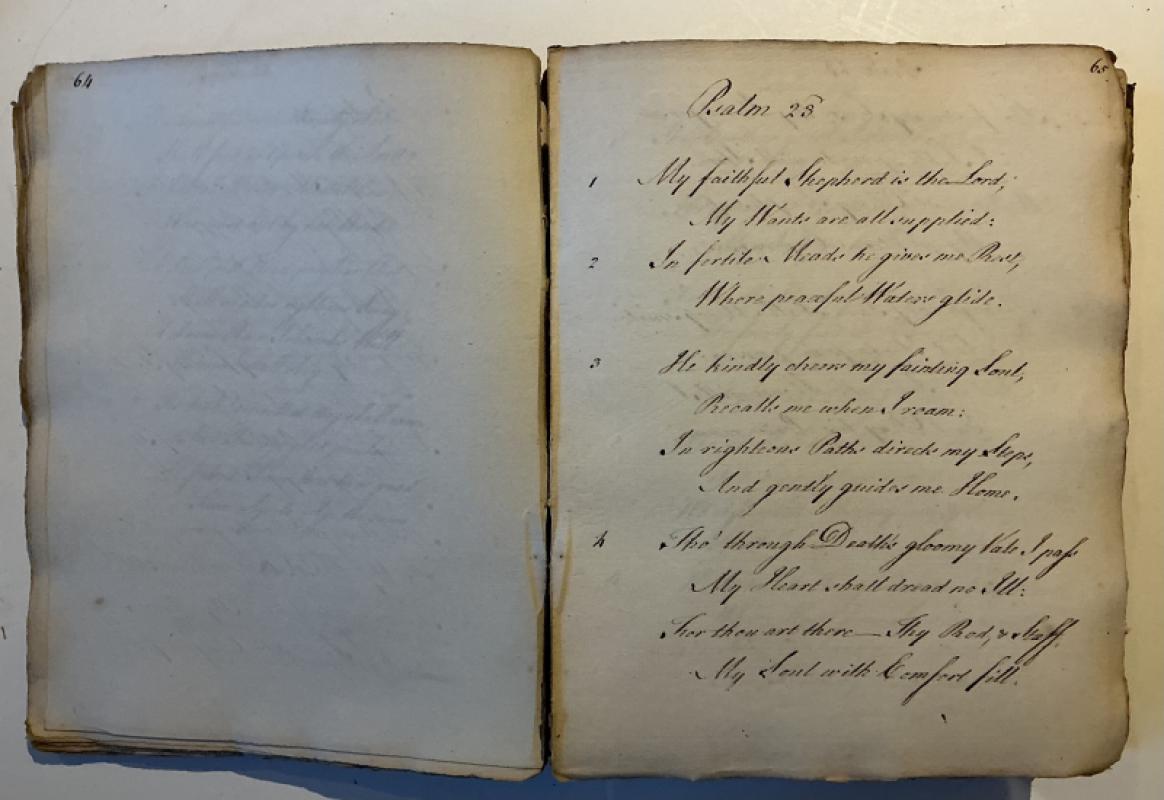 64
65
Psalm 23
1 My faithful Shepherd is the Lord;
My Wants are all supplied:
2 In fertile Meads he gives me Rest,
Where peaceful Waters glide.
3 He kindly cheers my fainting Soul,
Recalls me when I roam:
In righteous Paths directs my Steps,
And gently guides me Home.
4 Tho' through Death's gloomy Vale I pass
My Heart shall dread no Ill:
For thou art there — Thy Rod, & Staff
My Soul with Comfort fill.